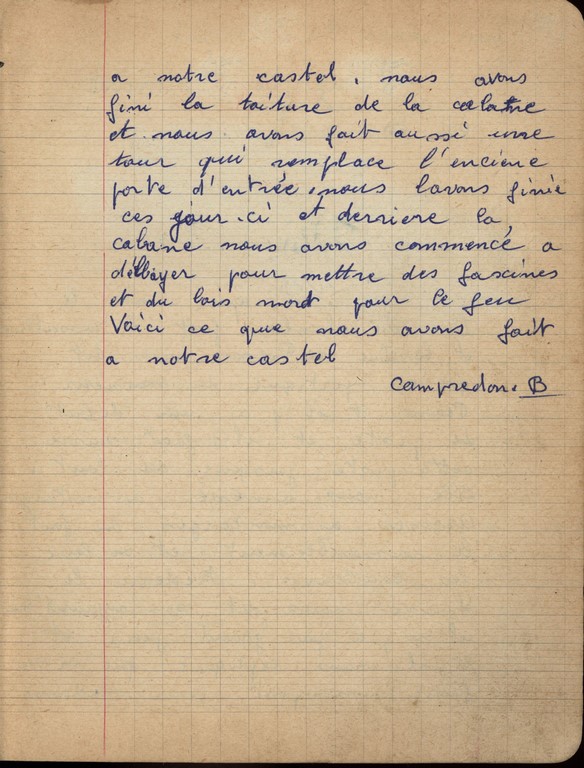 a notre castel. nous avons
fini la toiture de la cabane
et nous avons fait aussi une
tour qui remplace l'enciène
porte d'entrée. nous lavons finie
ces jour-ci et derriere la
cabane nous avons commencé a
débloyer pour mettre des fascines
et du bois mord pour le feu
Voici ce que nous avons fait
a notre castel
Campredon. B